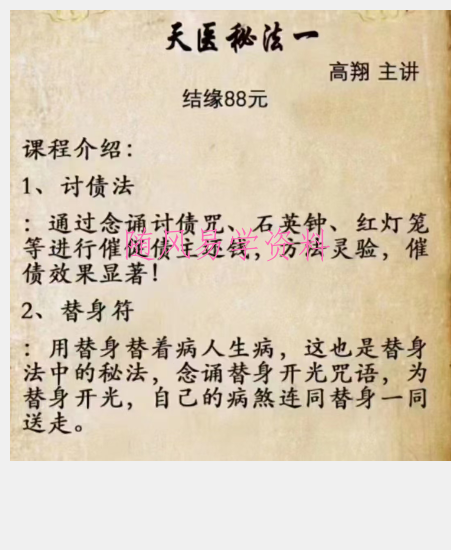 天医秘法一
高翔 主讲
结缘88元
课程介绍：
1、讨债法
：通过念诵讨债咒、石英钟、红灯笼
等进行催促债主还钱，方法灵验，催
债效果显著！
随风易学资料
2、替身符
：用替身替着病人生病，这也是替身
法中的秘法，念诵替身开光咒语，为
替身开光，自己的病煞连同替身一同
送走。